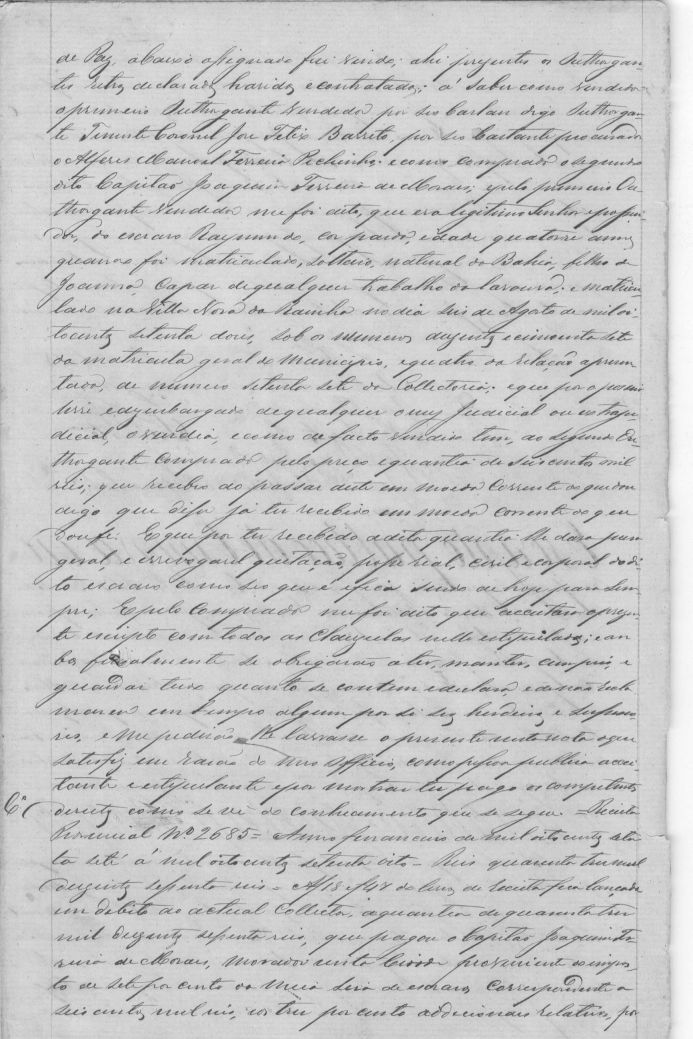 de Paz, abaixo assignado fui vindo; ahi presentes os Outhorgan-
tes retro declarados, havidos e contratados; á saber como vendedor
o primeiro Outhorgante vendedor por seo digo Outhorgan-
te Tenente Coronel Jose Felix Barreto, por seo bastante procurador
o Alferes Manoel Ferreira Pechinho; e como comprador o segundo
dito Capitaõ Joaquim Ferreira de Moraes; e pelo primeiro Ou-
thorgante vendedor me foi dito, que era legitimo Senhor e possui-
dor, do escravo Raymundo, cor parda, idade quatorze annos
quando foi matriculado, solteiro, natural da Bahia, filho de
Joanna, capaz de qualquer trabalho da lavoura; e matricu-
lado na Villa Nova da Rainha no dia seis de Agosto de mil oi-
tocentos setenta dois, sob os numeros duzentos e cincoenta sete
da matricula geral do Municipio, e quatro da relaçaõ apresen-
tada, de numero setenta sete da Collectoria; e que por o possuir
livre e dezembargado de qualquer onus Judicial ou extraju-
dicial, o vendia, e como de facto vendido tem, ao segundo Ou-
thorgante comprador pelo preço e quantia de seis centos mil
reis; que recebeo ao passar deste em moeda corrente do que dou
digo que disse já ter recebido em moeda corrente do que
dou fé. E que por ter recebido a dita quantia lhe dava pura
geral, e irrevogavel quitaçaõ, posse real, civil e corporal do di-
to escravo como seo que é e fica sendo de hoje para sem-
pre; E pelo Comprador me foi dito que aceitava o prezen-
te escripto com todas as Clauzulas nelle estipuladas; e am-
bos formalmente se obrigaraõ a ter, manter, cumprir, e
guardar tudo quanto se contem e declara, e a naõ recla-
marem em tempo algum por si seos herdeiros e Successo-
res, e me pediraõ lhe lavrasse o presente nesta nota o que
satisfiz em razaõ do meo Officio, como pessoa publica acei-
tante e estipulante e por mostrar ter pago os competentes
direitos como se vê do conhecimento que se segue. = Receita
Provincial Nº 2685 = Anno financeiro de mil oito centos seten-
ta sete á mil oito centos setenta oito = Reis quarenta tres mil
duzentos sessenta reis = A f 18 do livro de receita fica lançado
em debito ao actual Collector, a quantia de quarenta tres
mil duzentos sessenta reis, que pagou o Capitaõ Joaquim Fer-
reira de Moraes, morador nesta Cidade proveniente do impos-
to de sete por cento da Meia Siza de escravos correspondente a
seis centos mil reis, e os tres por cento addicionaes relativos, por